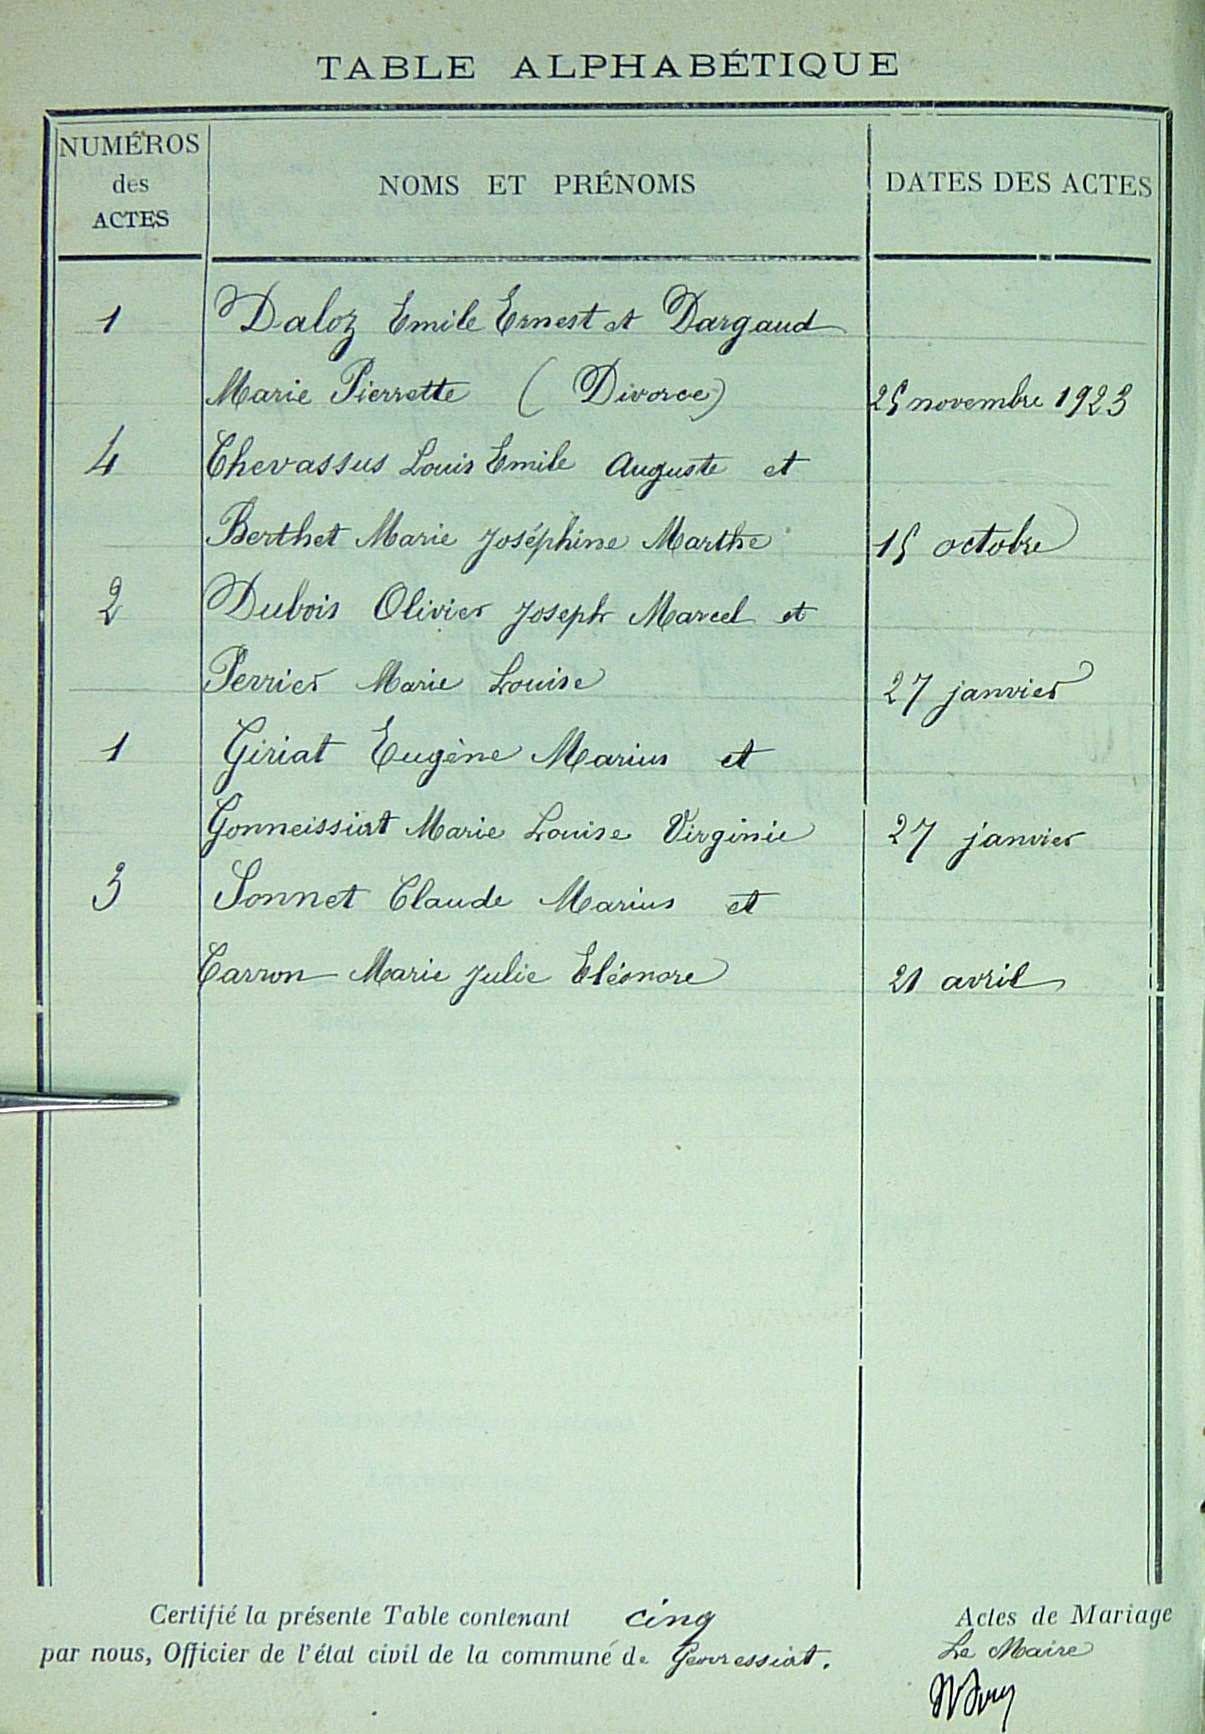 TABLE ALPHABÉTIQUE
NUMÉROS des ACTES NOMS ET PRÉNOMS DATES DES ACTES
1 Daloz Emile Ernest et Dargaud
Marie Pierrette (Divorce) 25 novembre 1923
4 Chevassus Louis Emile Auguste et
Berthet Marie Joséphine Marthe 15 octobre
2 Dubois Olivier Joseph Marcel et
Perrier Marie Louise 27 janvier
1 Giriat Eugène Marius et
Gonneissiat Marie Louise Virginie 27 janvier
3 Sonnet Claude Marius et
Carron Marie Julie Eléonore 21 avril
Certifié la présente Table contenant cinq Actes de Mariage
par nous, Officier de l'état civil de la commune de Geovressiat. Le Maire